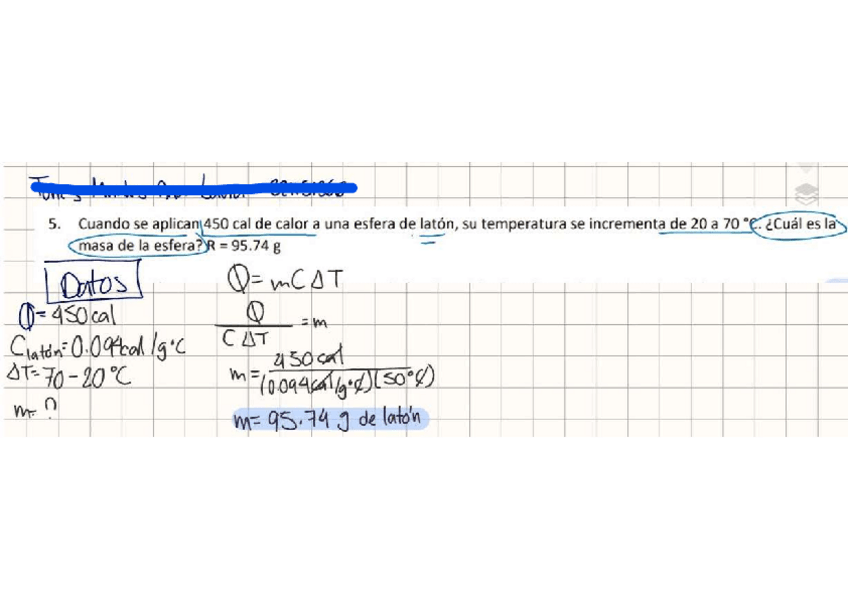 5. Cuando se aplican 450 cal de calor a una esfera de latón, su temperatura se incrementa de 20 a 70 °C. ¿Cuál es la
masa de la esfera? R = 95.74 g
Datos
Q = 450 cal
C latón = 0.094 cal/g°C
ΔT = 70 - 20 °C
m = ?
Q = mCΔT
Q / CΔT = m
m = 450 cal / (0.094 cal/g°C)(50°C)
m = 95.74 g de latón